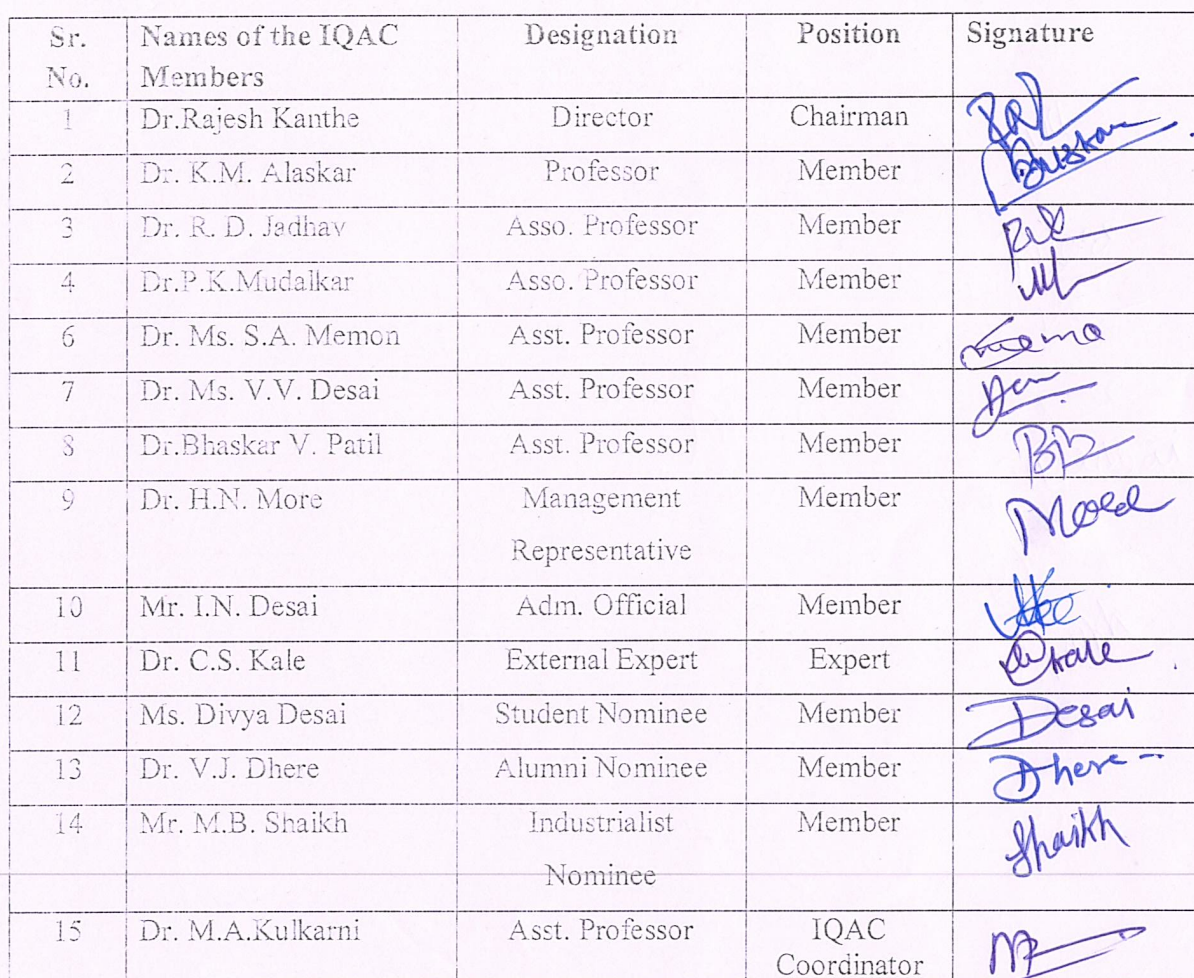 Sr. No. Names of the IQAC Members Designation Position Signature
1 Dr.Rajesh Kanthe Director Chairman
2 Dr. K.M. Alaskar Professor Member
3 Dr. R. D. Jadhav Asso. Professor Member
4 Dr.P.K.Mudalkar Asso. Professor Member
6 Dr. Ms. S.A. Memon Asst. Professor Member
7 Dr. Ms. V.V. Desai Asst. Professor Member
8 Dr.Bhaskar V. Patil Asst. Professor Member
9 Dr. H.N. More Management Representative Member
10 Mr. I.N. Desai Adm. Official Member
11 Dr. C.S. Kale External Expert Expert
12 Ms. Divya Desai Student Nominee Member Desai
13 Dr. V.J. Dhere Alumni Nominee Member Dhere
14 Mr. M.B. Shaikh Industrialist Nominee Member Shaikh
15 Dr. M.A.Kulkarni Asst. Professor IQAC Coordinator